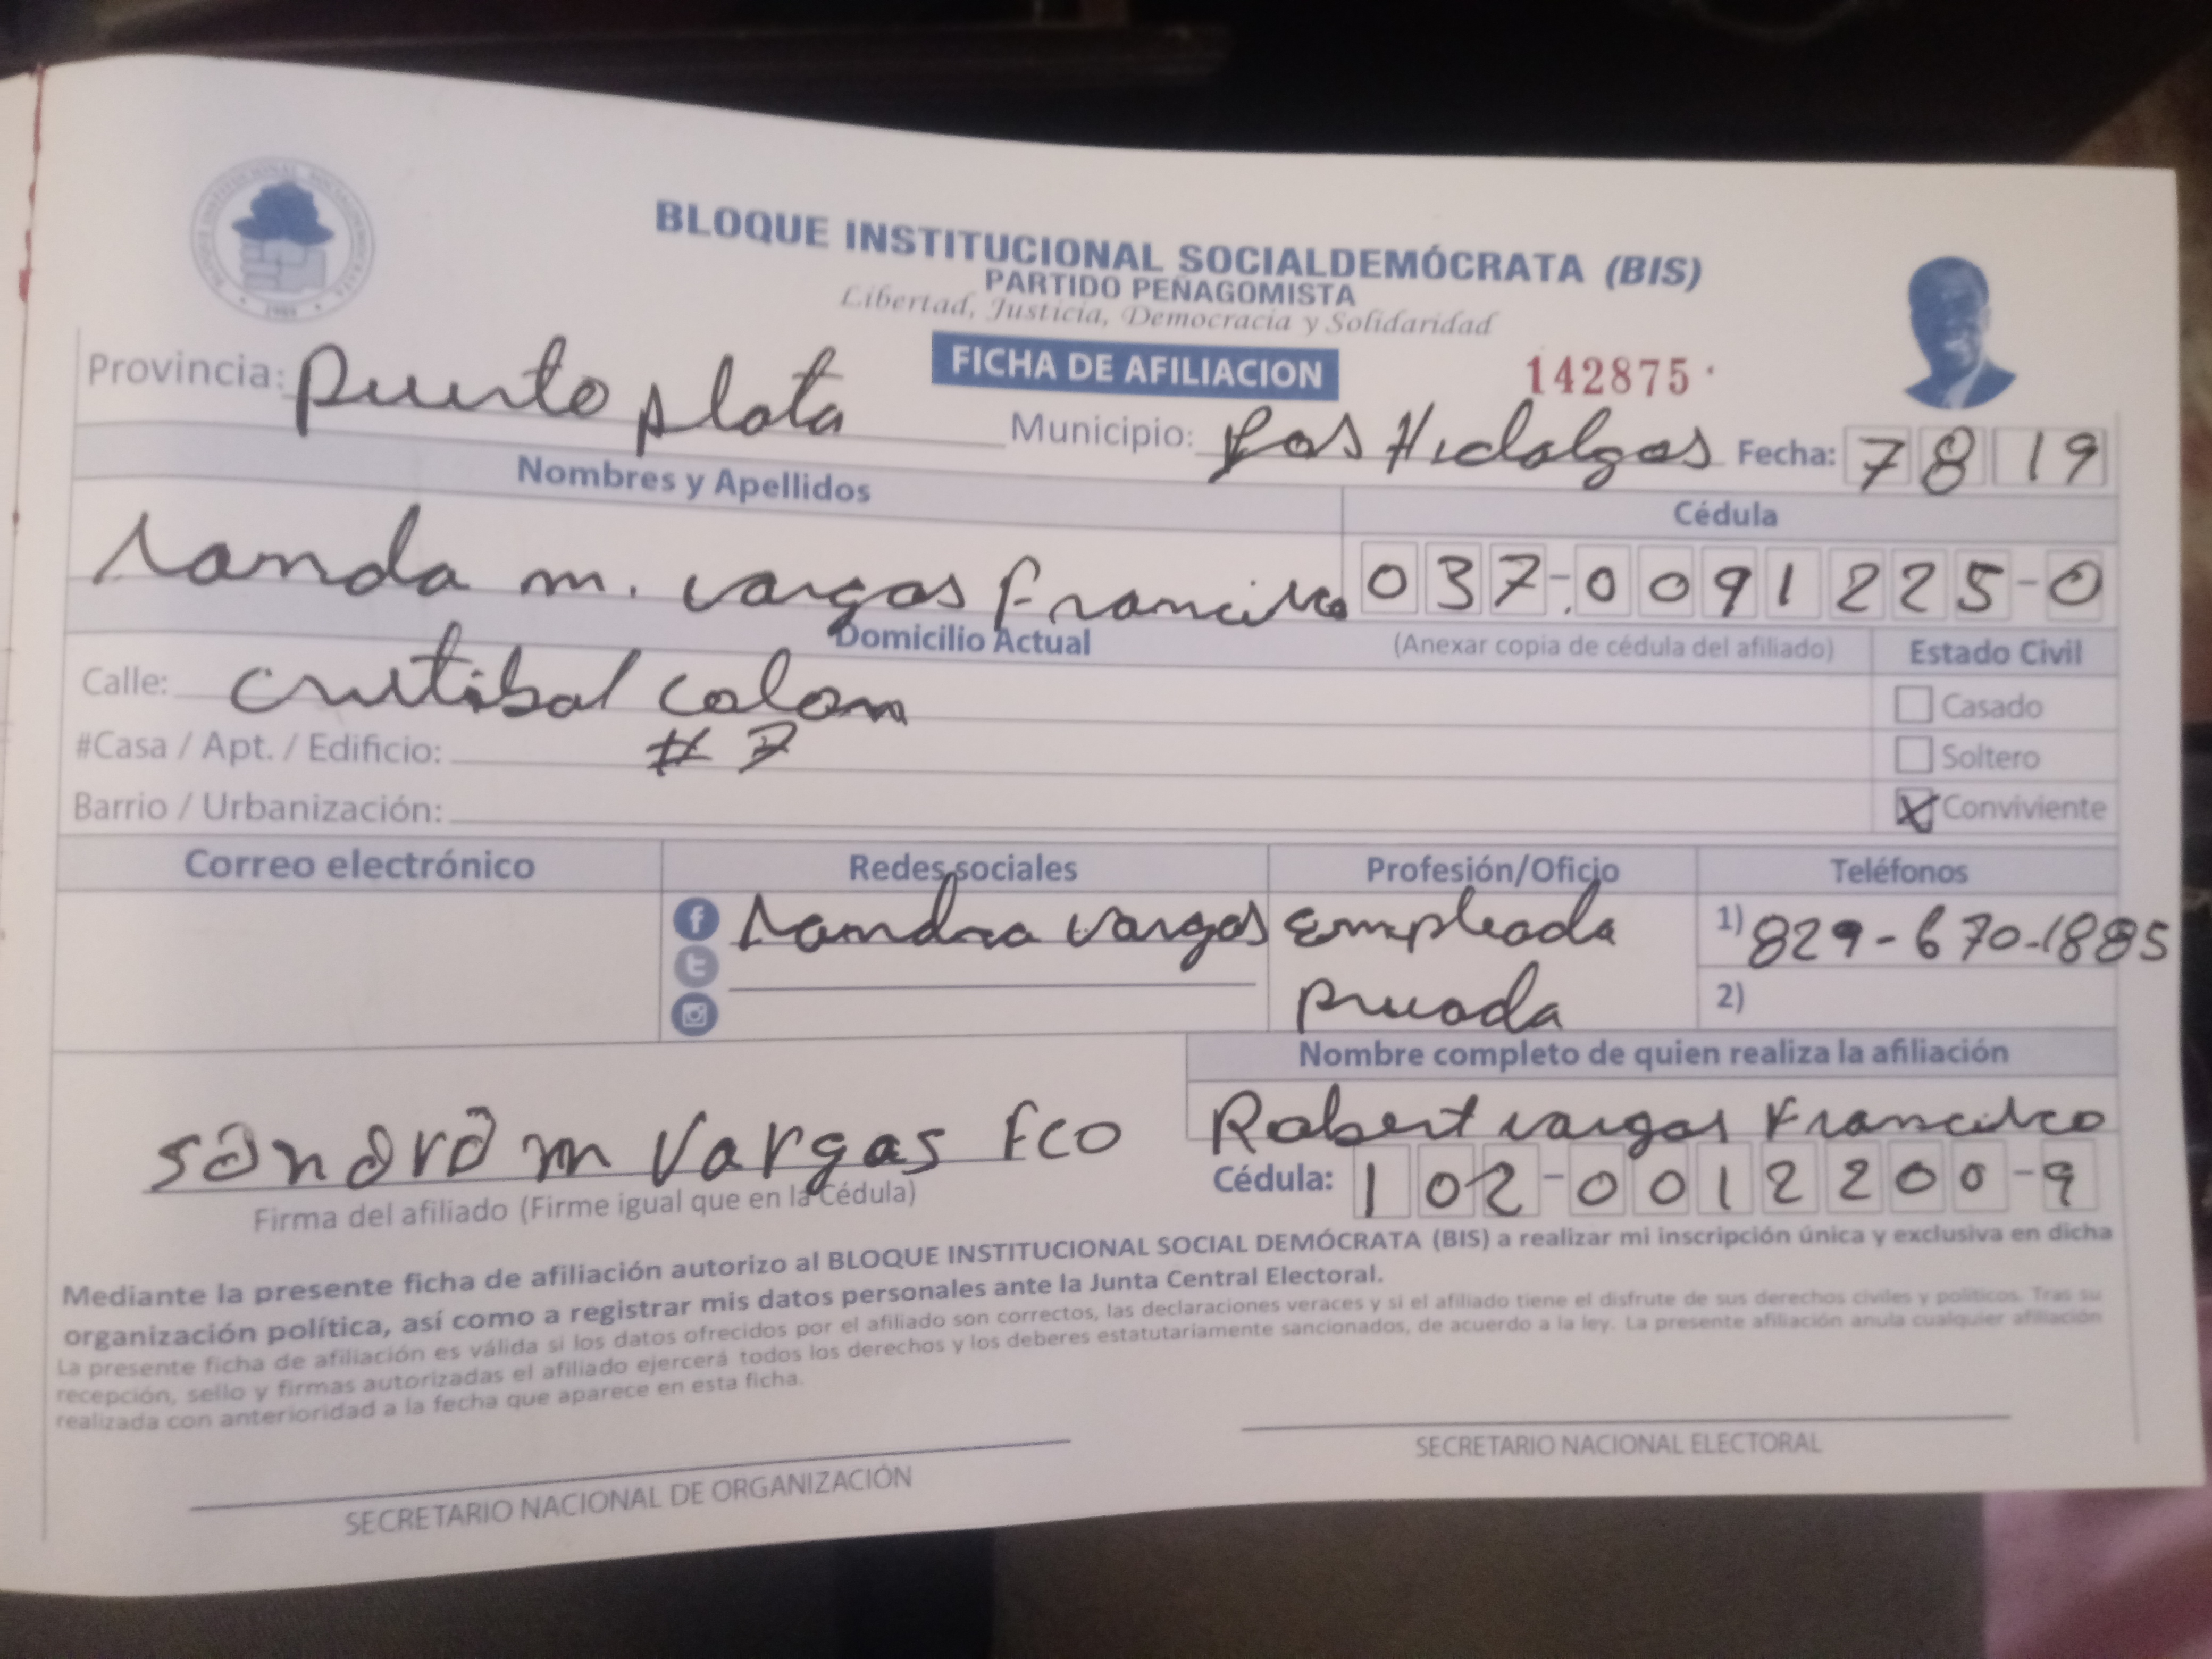 BLOQUE INSTITUCIONAL SOCIALDEMÓCRATA (BIS)
PARTIDO PEÑAGOMISTA
Libertad, Justicia, Democracia y Solidaridad
FICHA DE AFILIACION
142875
Provincia: Puerto plata
Municipio: Los Hidalgos
Fecha: 7 8 19
Nombres y Apellidos
Cédula
sanda m. vargas Francisco
037-0091225-0
Domicilio Actual
(Anexar copia de cédula del afiliado)
Estado Civil
Calle: cristobal colon
Casado
#Casa / Apt. / Edificio: # 7
Soltero
Barrio / Urbanización:
Conviviente
Correo electrónico
Redes sociales
Profesión/Oficio
Teléfonos
sandra vargas
empleada
privada
1) 829-670-1885
2)
Nombre completo de quien realiza la afiliación
Robert vargas Francisco
Cédula: 102-0012200-9
sandra m Vargas fco
Firma del afiliado (Firme igual que en la Cédula)
Mediante la presente ficha de afiliación autorizo al BLOQUE INSTITUCIONAL SOCIAL DEMÓCRATA (BIS) a realizar mi inscripción única y exclusiva en dicha
organización política, así como a registrar mis datos personales ante la Junta Central Electoral.
La presente ficha de afiliación es válida si los datos ofrecidos por el afiliado son correctos, las declaraciones veraces y si el afiliado tiene el disfrute de sus derechos civiles y políticos. Tras su
recepción, sello y firmas autorizadas el afiliado ejercerá todos los derechos y los deberes estatutariamente sancionados, de acuerdo a la ley. La presente afiliación anula cualquier afiliación
realizada con anterioridad a la fecha que aparece en esta ficha.
SECRETARIO NACIONAL DE ORGANIZACIÓN
SECRETARIO NACIONAL ELECTORAL